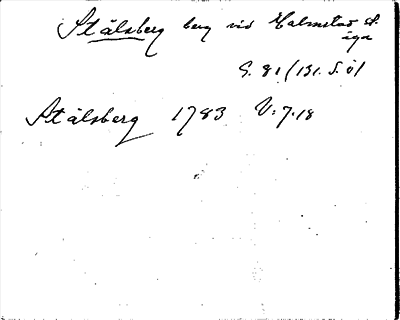 Stålsberg berg vid Halmstad st.
äga
G. 81/131. S. öl
Stålsberg 1783 V: 7.18